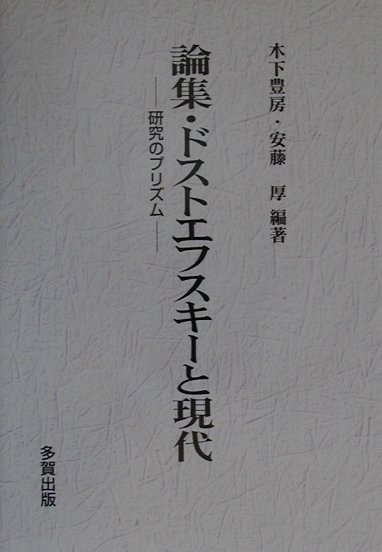 木下豊房・安藤 厚 編著
論集・ドストエフスキーと現代
──研究のプリズム──
多賀出版